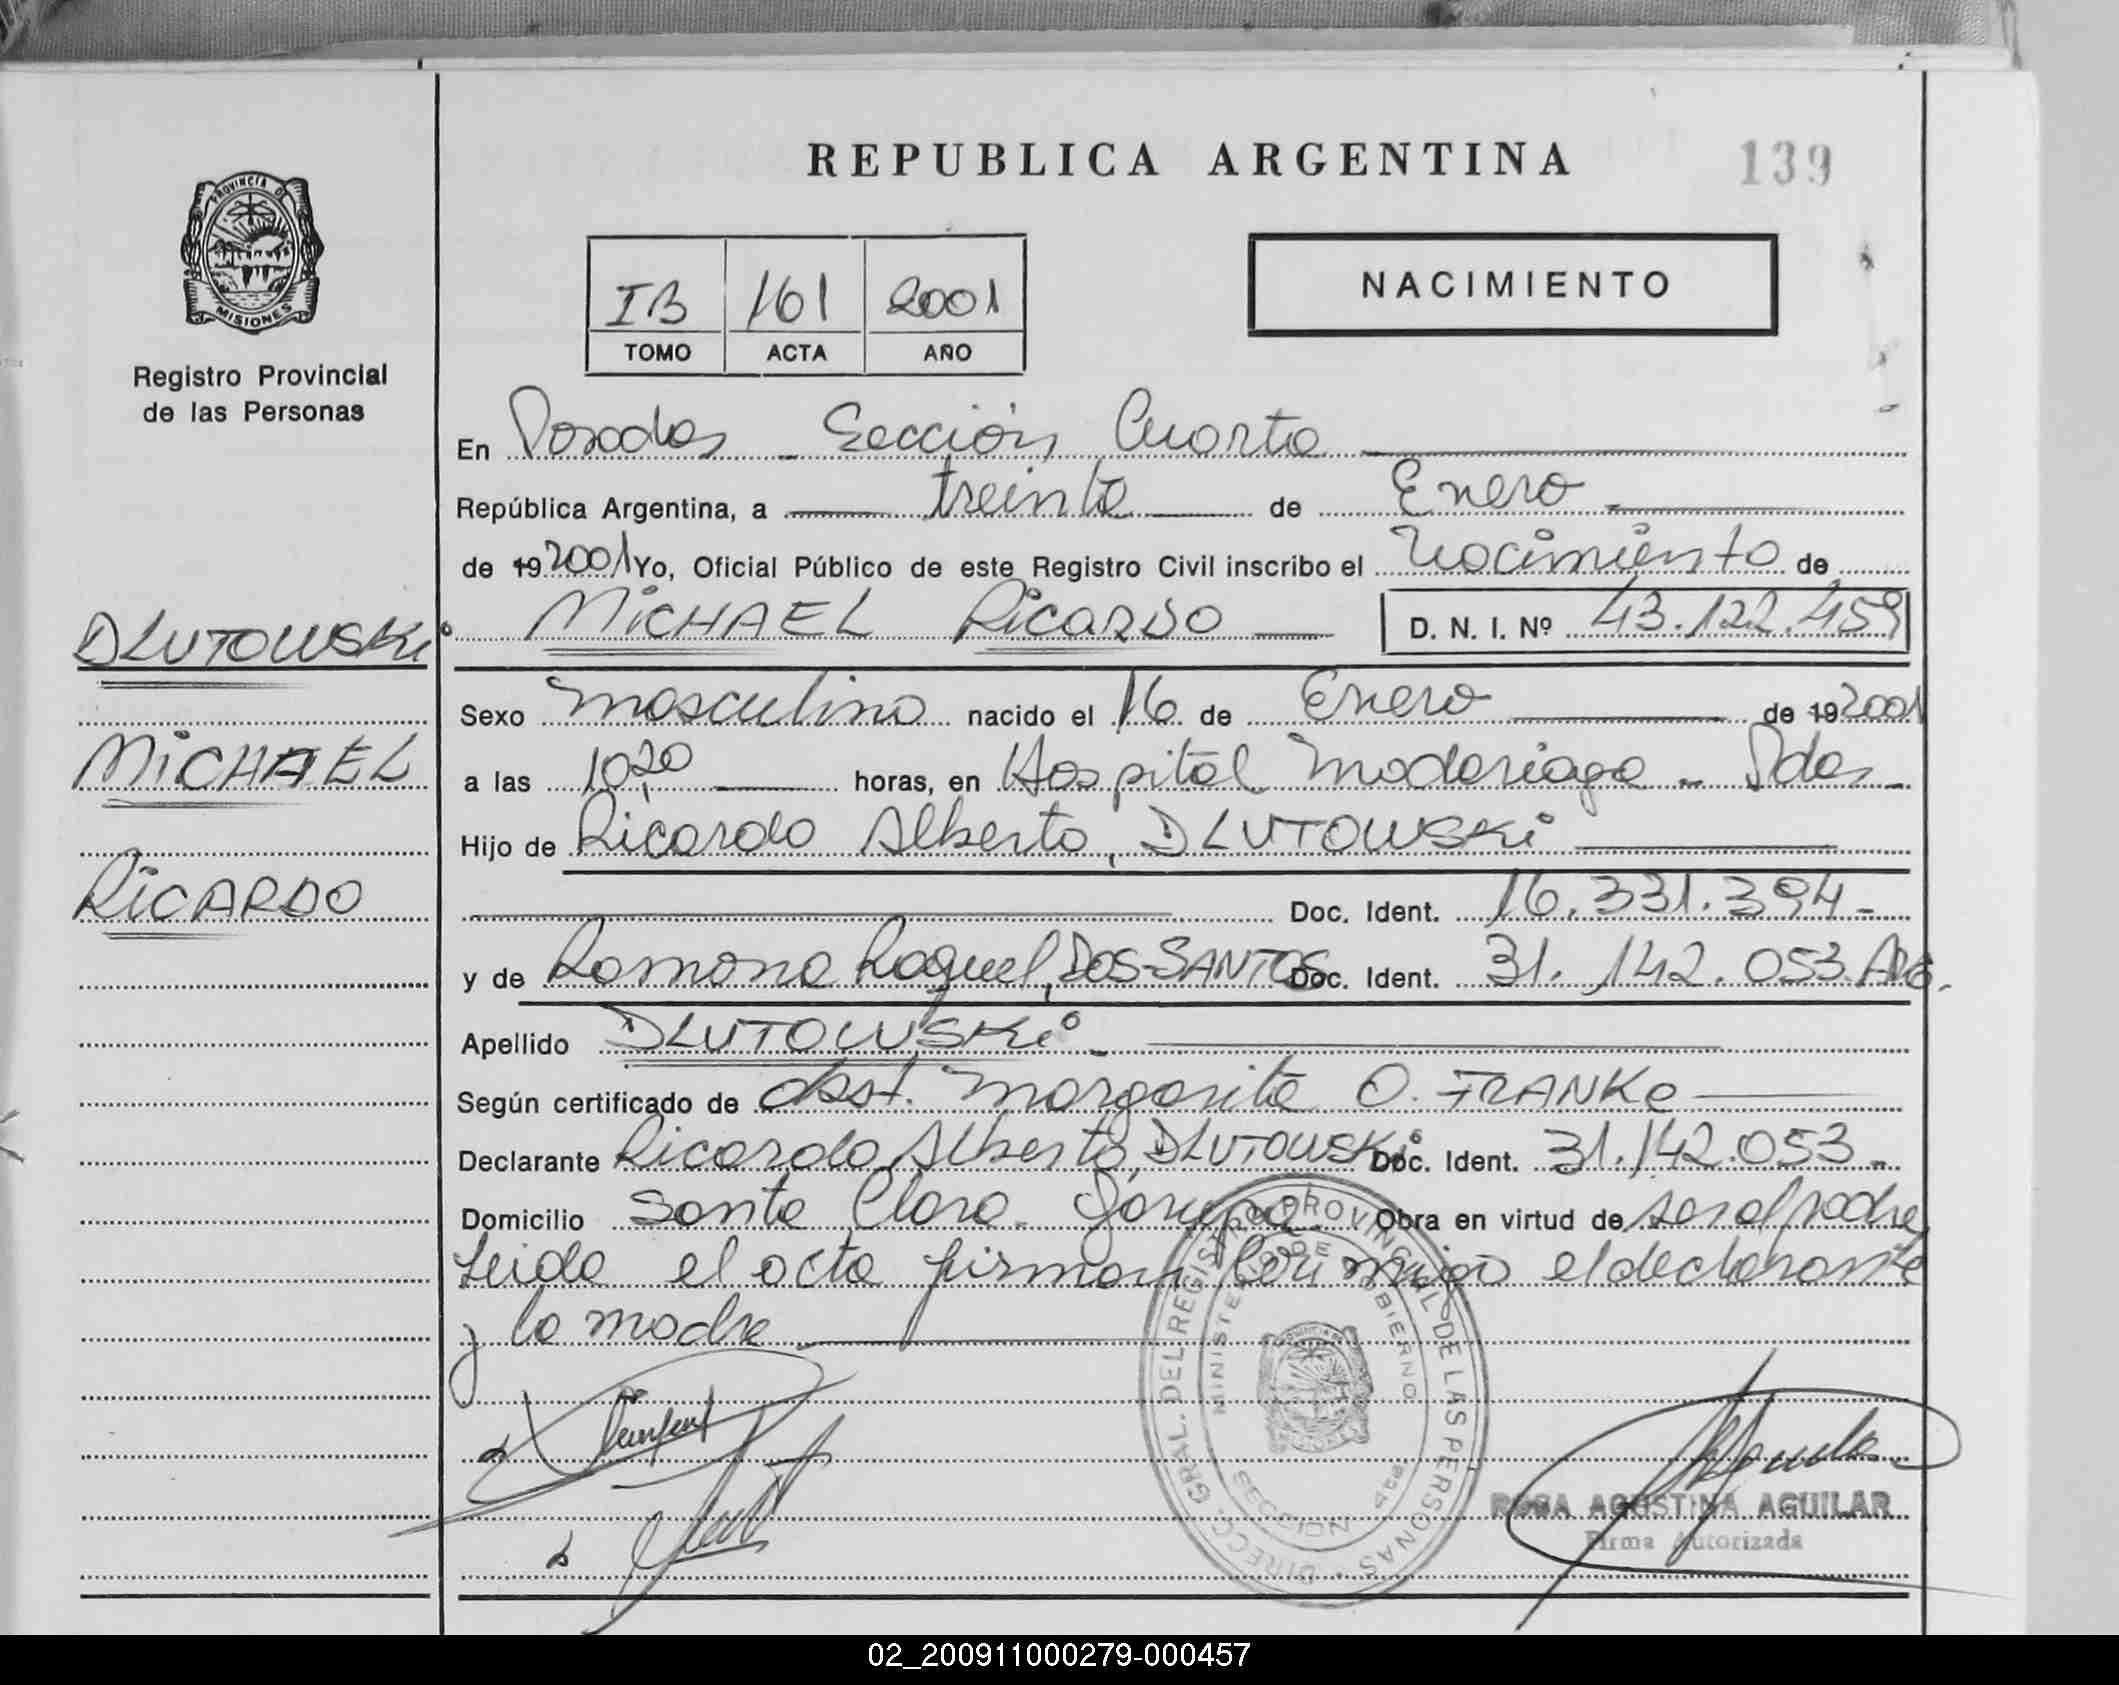 REPUBLICA ARGENTINA
139
PROVINCIA DE
MISIONES
Registro Provincial
de las Personas
IB 161 2001
TOMO ACTA AÑO
NACIMIENTO
En Posadas - Sección Cuarta
República Argentina, a treinta de Enero
de 19 2001 Yo, Oficial Público de este Registro Civil inscribo el Nacimiento de
MICHAEL RICARDO D. N. I. Nº 43.122.459
DLUTOWSKI
MICHAEL
RICARDO
Sexo masculino nacido el 16 de Enero de 19 2001
a las 10,20 horas, en Hospital Madariaga - Pdas -
Hijo de Ricardo Alberto, DLUTOWSKI
Doc. Ident. 16.331.394-
y de Ramona Raquel, DOS-SANTOS Doc. Ident. 31.142.053 ARG.
Apellido DLUTOWSKI -
Según certificado de obst. Margarita O. FRANKE
Declarante Ricardo Alberto, DLUTOWSKI Doc. Ident. 31.142.053 -
Domicilio Santa Clara. Garupá Obra en virtud de ser el padre,
Leida el acta firman conmigo el declarante
y la madre
DIREC. GRAL. DEL REGISTRO PROVINCIAL DE LAS PERSONAS
MINISTERIO DE GOBIERNO
SECCION 4ta.
ROSA AGUSTINA AGUILAR
Firma Autorizada
02_200911000279-000457